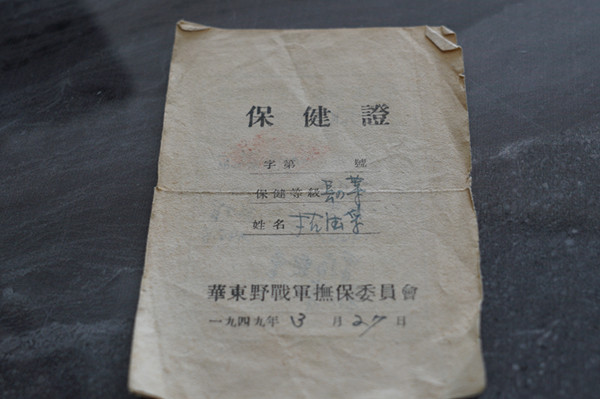 保健證
字第 號
保健等級
姓名
華東野戰軍撫保委員會
一九四九年 3 月 27 日